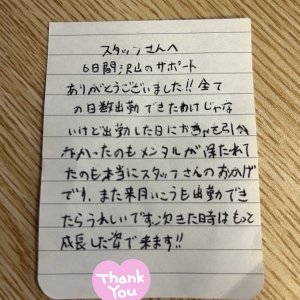 スタッフさんへ
6日間沢山のサポート
ありがとうございました!! 全て
の日数出勤できたわけじゃな
いけど出勤した日にお茶を引か
なかったのもメンタルが保たれて
たのも本当にスタッフさんのおかげ
です。また来月いこうも出勤でき
たらうれしいです 次きた時はもっと
成長した姿で来ます!!
Thank
You